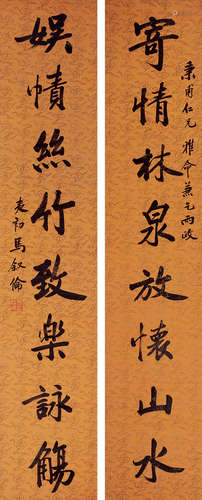 秉甫仁兄雅命兼乞兩政
寄情林泉放懷山水
娛幘絲竹致樂詠觴
夷初馬叙倫